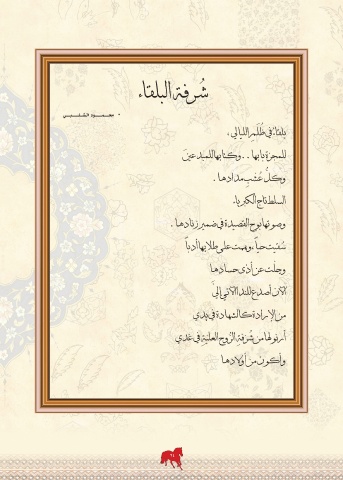 شُرفة البلقاء
محمود الشلبي
بلقاءُ في ظُلَمِ الليالي ،
للمجرّةِ بابها .. وكتابها للمبدعينَ
وكلُّ عُشبٍ مدادها .
السلط تاج الكبرياء
وصوتها بوح القصيدة في ضمير زنادها .
سُقيت حباً ، وهمت على طلابها أدباً
وجلت عن أذى حسادها
الآن أصدع للنداء الآتي إليّ
من الإرادة كالشهادة في يدي
أرنو لها من شرفة الروح العلية في غدي
وأكون من أولادها